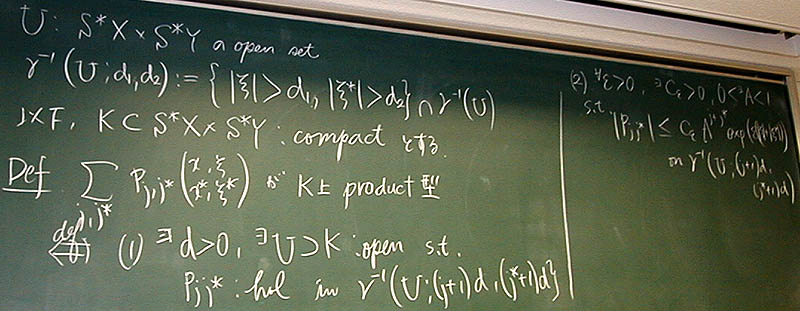 U: S*X × S*Y の open set
γ⁻¹(U; d₁, d₂) := { |ξ| > d₁, |ξ*| > d₂ } ∩ γ⁻¹(U)
以下, K ⊂ S*X × S*Y : compact とする.
Def. Σ_{j,j*} P_{j,j*}(x, ξ; x*, ξ*) が K上 product 型
⇔^{def} (1) ∃d>0, ∃U⊃K : open s.t.
P_{j,j*} : hol in γ⁻¹(U; (j+1)d, (j*+1)d)
(2) ∀ε>0, ∃C_ε>0, 0<∃A<1
s.t. |P_{j,j*}| ≤ C_ε A^{j+j*} exp(ε(|ξ|+|ξ*|))
on γ⁻¹(U; (j+1)d,
(j*+1)d)